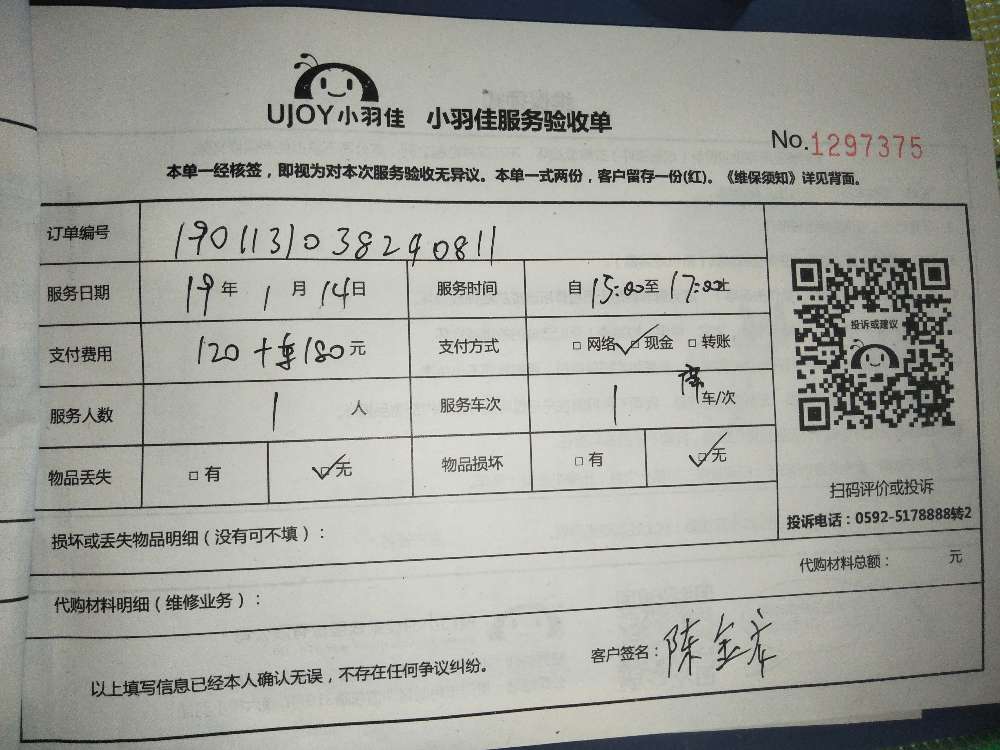 UJOY小羽佳 小羽佳服务验收单
No.1297375
本单一经核签，即视为对本次服务验收无异议。本单一式两份，客户留存一份(红)。《维保须知》详见背面。
订单编号 1901131038290811
服务日期 19年1月14日 服务时间 自15:00至17:00止
支付费用 120+180元 支付方式 □网络 ✓□现金 □转账
服务人数 1人 服务车次 1车/次
物品丢失 □有 ✓□无 物品损坏 □有 ✓□无
投诉或建议
扫码评价或投诉
投诉电话：0592-5178888转2
损坏或丢失物品明细（没有可不填）：
代购材料明细（维修业务）： 代购材料总额： 元
以上填写信息已经本人确认无误，不存在任何争议纠纷。 客户签名：陈金